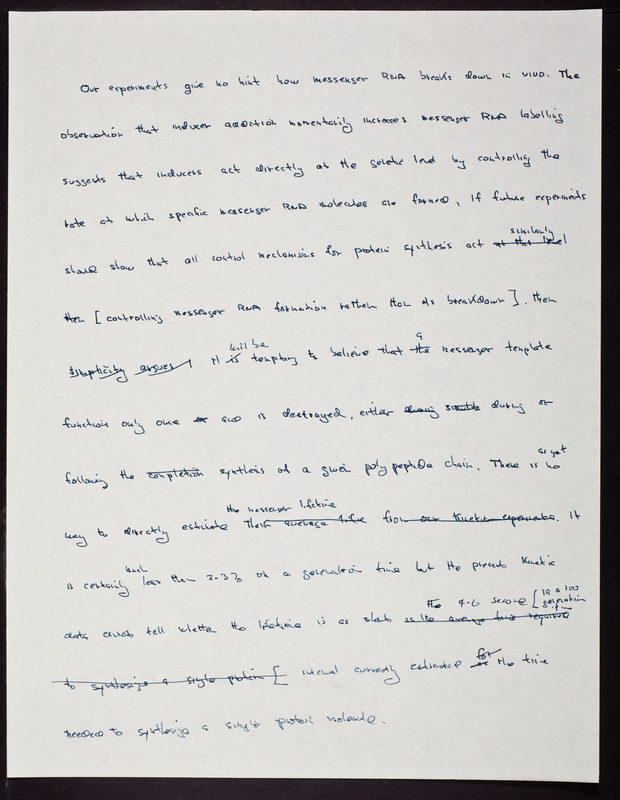 Our experiments give no hint how messenger RNA breaks down in vivo. The
observation that inducer addition momentarily increases messenger RNA labelling
suggests that inducers act directly at the genetic level by controlling the
rate at which specific messenger RNA molecules are formed, If future experiments
similarly
should show that all control mechanisms for protein synthesis act at this level
then [controlling messenger RNA formation rather than its breakdown]. then
will be a
simplicity argues it is tempting to believe that the messenger template
function only once and is destroyed, either during during or
as yet
following the completion synthesis of a given polypeptide chain. There is no
the messenger lifetime
way to directly estimate their average life from our kinetic experiments. It
much
is certainly less than 2-3% of a generation time but the present kinetic
the 4-6 second [in a 100
generation
data cannot tell whether the lifetime is as short as the average time required
for
to synthesize a single protein [ interval currently estimated as the time
needed to synthesize a single protein molecule.